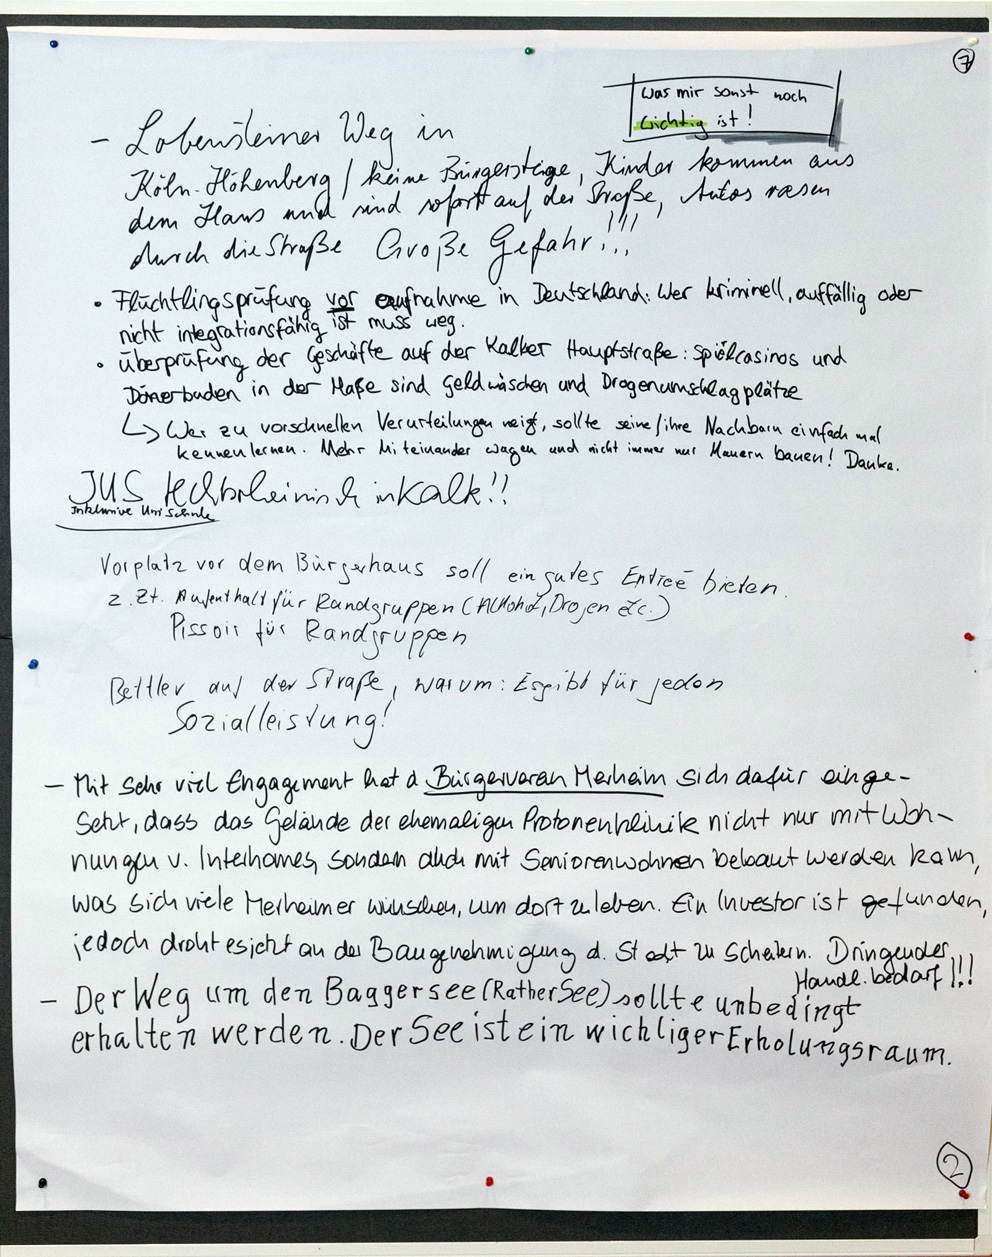 7
Was mir sonst noch
wichtig ist!
- Lobensteiner Weg in
Köln-Höhenberg / keine Bürgersteige, Kinder kommen aus
dem Haus und sind sofort auf der Straße, Autos rasen
durch die Straße Große Gefahr!!!
• Flüchtlingsprüfung vor aufnahme in Deutschland: Wer kriminell, auffällig oder
nicht integrationsfähig ist muss weg.
• Überprüfung der Geschäfte auf der Kalker Hauptstraße: Spielcasinos und
Dönerbuden in der Maße sind Geldwäschen und Drogenumschlagplätze
↳ Wer zu vorschnellen Verurteilungen neigt, sollte seine/ihre Nachbarn einfach mal
kennenlernen. Mehr Miteinander wagen und nicht immer nur Mauern bauen! Danke.
JUS rechtsrheinisch in Kalk!!
Inklusive Uni Schule
Vorplatz vor dem Bürgerhaus soll ein gutes Entreé bieten.
z.Zt. Aufenthalt für Randgruppen (Alkohol, Drogen etc.)
Pissoir für Randgruppen
Bettler auf der Straße, warum: Es gibt für jeden
Sozialleistung!
- Mit sehr viel Engagement hat d Bürgerverein Merheim sich dafür einge-
setzt, dass das Gelände der ehemaligen Protonenklinik nicht nur mit Woh-
nungen v. Interhomes, sondern auch mit Seniorenwohnen bebaut werden kann,
was sich viele Merheimer wünschen, um dort zu leben. Ein Investor ist gefunden,
jedoch droht es jetzt an der Baugenehmigung d. Stadt zu scheitern. Dringender
Handl.bedarf!!!
- Der Weg um den Baggersee (Rather See) sollte unbedingt
erhalten werden. Der See ist ein wichtiger Erholungsraum.
2